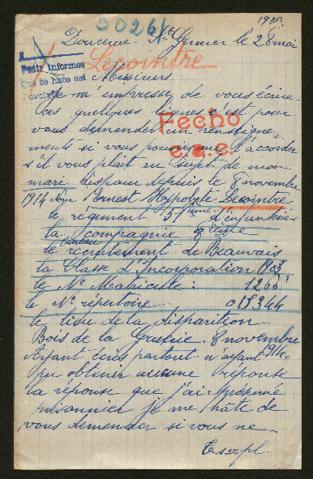 1915
Doucene N. Germer le 28 mai
Lecointre
Pedir informes
Messieurs
Je m'empresse de vous écrire
ces quelques lignes c'est pour
vous demander un renseigne-
ments si vous pouvez me l'accorder
s'il vous plait au sujet de mon
Fecho
e.a.c.
mari disparu depuis le 8 novembre
1914 Ernest Hyppolyte Lecointre
le regiment 51ième d'infanterie
la compagnie
le recrutement de Beauvais
la Classe d'Incorporation 1903
le No Matricule :
le No répertoire 015344
le lieu de la disparition
Bois de la Grurie. 8 novembre
1914.
partout n'ayant
pu obtenir aucune réponse
la réponse que j'ai
prisonnier je me hâte de
vous demender si vous ne